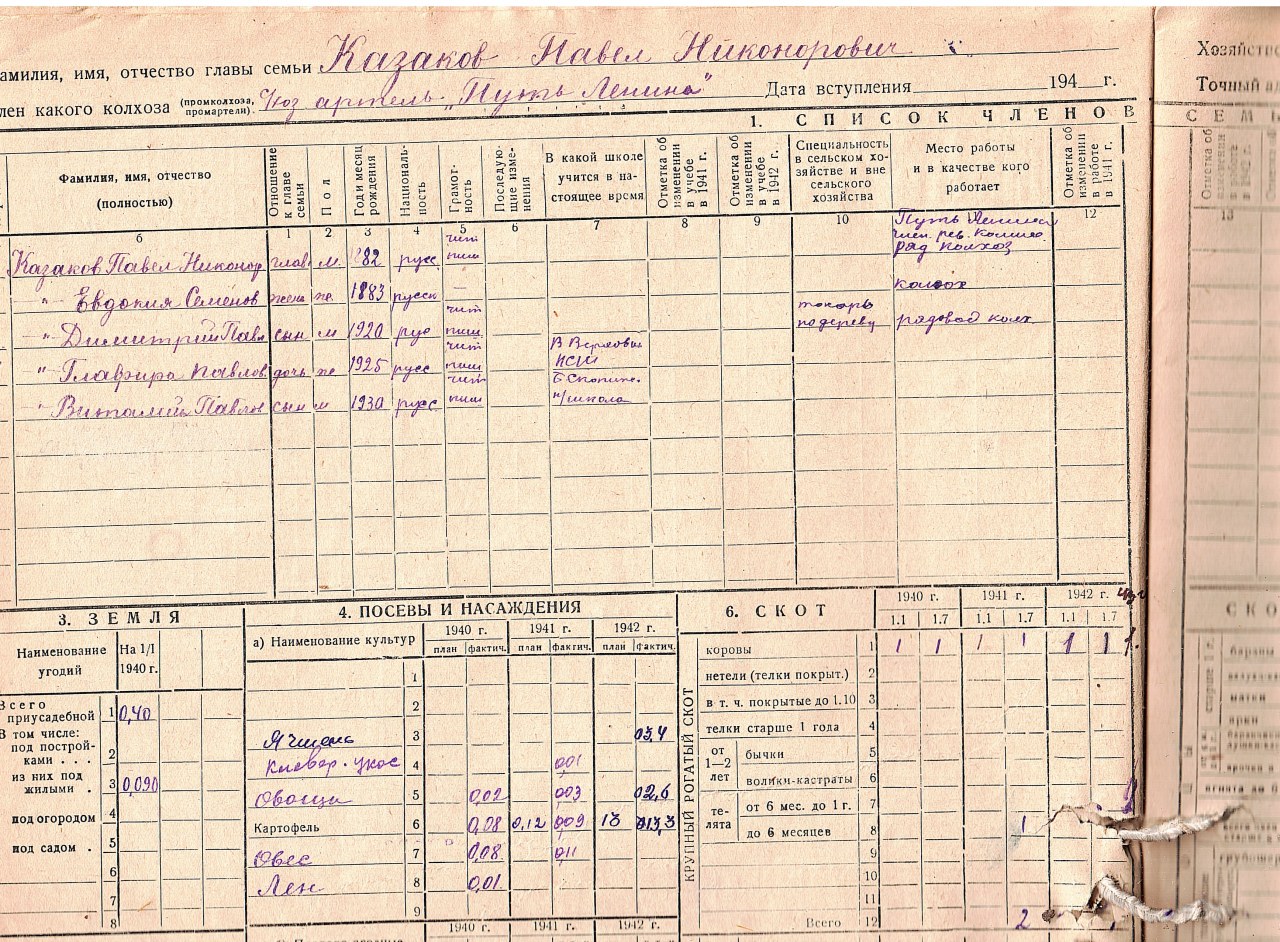 амилия, имя, отчество главы семьи Казаков Павел Никонорович
лен какого колхоза (промколхоза, промартели). с/хоз артель „Путь Ленина" Дата вступления 194 г.
1. СПИСОК ЧЛЕНОВ
Фамилия, имя, отчество (полностью)
Отношение к главе семьи
Пол
Год и месяц рождения
Националь-ность
Грамот-ность
Последую-щие изме-нения
В какой школе учится в на-стоящее время
Отметка об изменении в учебе в 1941 г.
Отметка об изменении в учебе в 1942 г.
Специальность в сельском хо-зяйстве и вне сельского хозяйства
Место работы и в качестве кого работает
Отметка об изменении работе в 1941 г.
б 1 2 3 4 5 6 7 8 9 10 12
Путь Ленина
член рев. комис.
Казаков Павел Никонор. глав м 1882 русс чит пиш ряд колхоз
" Евдокия Семенов жена ж. 1883 русск — колхоз
" Димитрий Павл сын м 1920 рус чит пиш токарь по дереву рядовой колх.
" Глафира Павлов. дочь ж 1925 русс чит пиш В Верховин НСШ
" Виталий Павлов сын м 1930 русс чит пиш н/школа
3. ЗЕМЛЯ
Наименование угодий На 1/I 1940 г.
Всего приусадебной 1 0,40
В том числе:
под построй-ками . . . 2
из них под жилыми . 3 0,090
под огородом 4
под садом . 5
6
7
8
4. ПОСЕВЫ И НАСАЖДЕНИЯ
а) Наименование культур 1940 г. 1941 г. 1942 г.
план фактич. план фактич. план фактич.
1
2
Ячмень 3 03,4
Клевер. укос 4 001
Овощи 5 0,02 003 02,6
Картофель 6 0,08 0,12 009 13 013,3
Овес 7 0,08 011
Лен 8 0,01
9
1940 г. 1941 г. 1942 г.
6. СКОТ
1940 г. 1941 г. 1942 г.
1.1 1.7 1.1 1.7 1.1 1.7
КРУПНЫЙ РОГАТЫЙ СКОТ
коровы 1 1 1 1 1 1 1 1.
нетели (телки покрыт.) 2
в т. ч. покрытые до 1.10 3
телки старше 1 года 4
от 1—2 лет бычки 5
волики-кастраты 6
те-лята от 6 мес. до 1 г. 7
до 6 месяцев 8 1
9
10
11
Всего 12 2
Хозяйство
Точный ад
СЕМЬ
13
СКО
бараны
матки
ярки